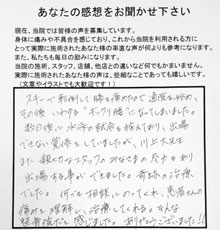 あなたの感想をお聞かせ下さい
現在、当院では皆様の声を募集しています。
身体に痛みや不具合を感じており、これから当院を利用される方に
とって実際に施術されたあなた様の率直な声が何よりも参考になります。
また、私たちも毎日の励みになります。
当院の施術、スタッフ、店舗、他店との違いなど何でもかまいません。
実際に施術されたあなた様の声は、些細なことであっても嬉しいです。
（文章やイラストでも大歓迎です！）
スキーで転倒して膝を痛めたて通院を始め、
その後いわゆる"ギックリ腰"になってしまいました。
数日後に水泳の試合を控えており、出場
できない覚悟をしていましたが、川上大先生
また親切なスタッフのみなさまの
出場する事ができました。奇跡の治療
でした。何でも相談にのってくれ、患者さんの
痛みを理解し、治療してくれる。そんな
接骨院だと感じました。ありがとうございました!!